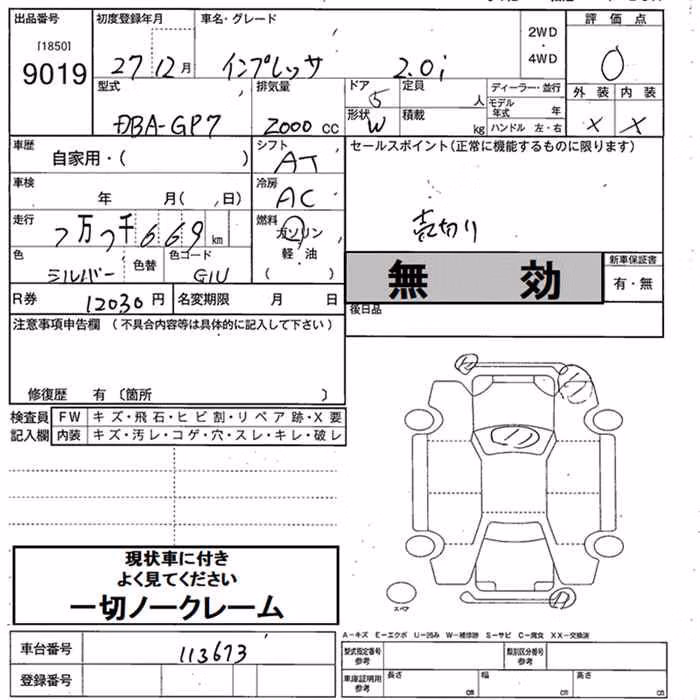 出品番号 初度登録年月 車名・グレード 2WD・4WD 評価点
[1850]
9019 27 12 月 インプレッサ 2.0i 0
型式 排気量 ドア 定員 ディーラー・並行 外装 内装
DBA-GP7 2000 cc 5 人 モデル年式 年 X X
形状 W 積載 kg ハンドル 左・右
車歴 自家用・( ) シフト AT セールスポイント(正常に機能するものに限ります)
車検 年 月( 、日) 冷房 AC
走行 7万7千669 km 燃料 ガソリン 売切り
軽・油
( )
色 シルバー 色替 色コード G1U 無 効 新車保証書 有・無
R券 12030 円 名変期限 月 日 後日品
注意事項申告欄 (不具合内容等は具体的に記入して下さい)
修復歴 有 〔箇所 〕
検査員 FW キズ・飛石・ヒビ割・リペア跡・X要
記入欄 内装 キズ・汚レ・コゲ・穴・スレ・キレ・破レ
現状車に付き
よく見てください
一切ノークレーム
スペア
A-キズ E-エクボ U-凹み W-補修跡 S-サビ C-腐食 XX-交換済
車台番号 113673 型式指定番号 参考 類別区分番号 参考
登録番号 車庫証明用 参考 長さ cm 幅 cm 高さ cm